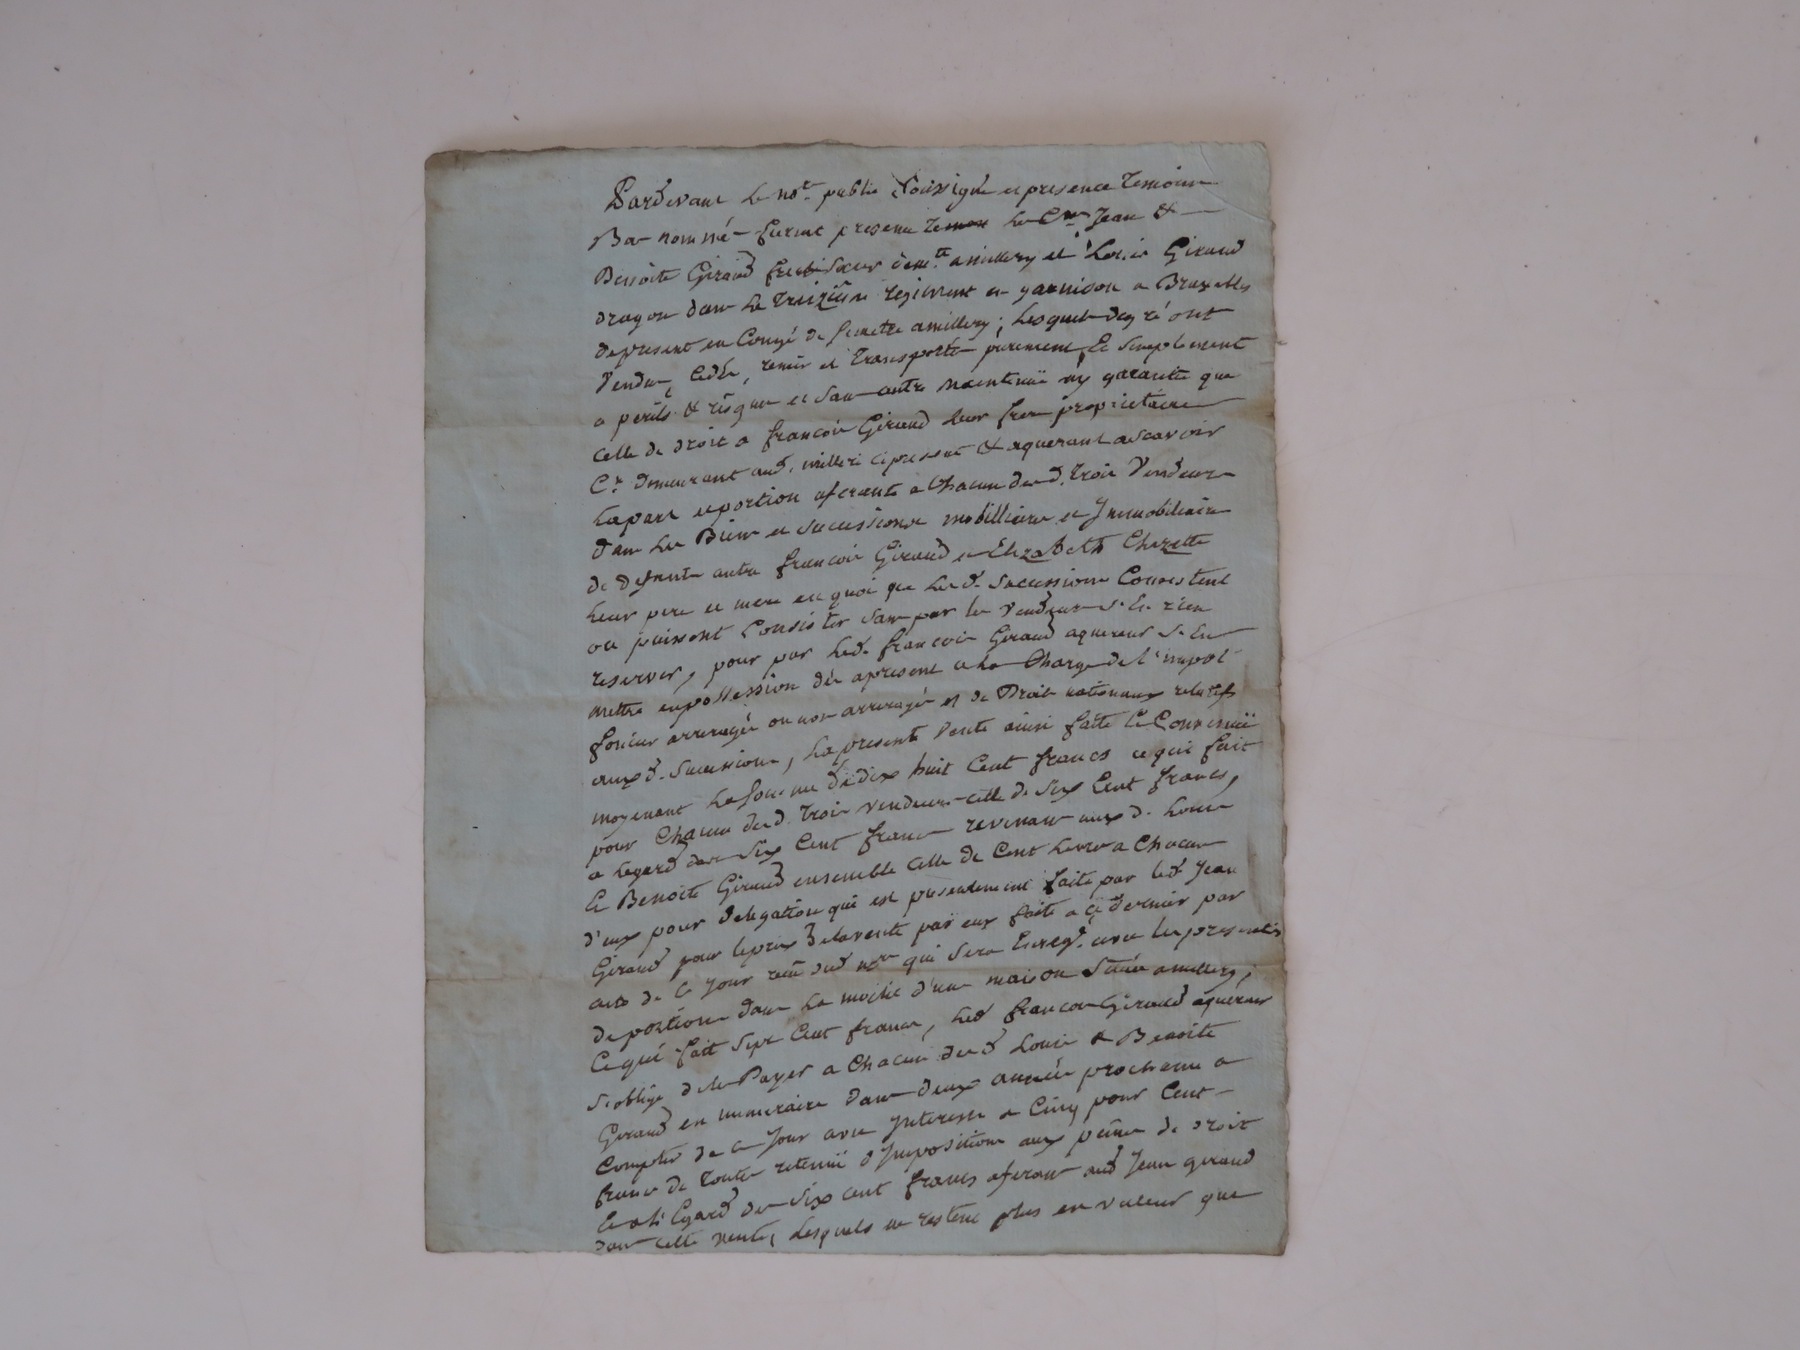 Pardevant le not.re public soussigné et presence temoins
Bas nommé furent presents les C.ens Jean &
Benoite Giraud frere & soeur dem.tt a millery et Louis Giraud
dragon dans le treizieme regiment en garnison a Bruxelles
depresent en Congé de semestre a millery ; lesquels de gré ont
Vendu, Cedés, remis et transportés purement & simplement
a perils & risques et sans autre maintenüe ny garantie que
Celle de droit a françois Giraud leur frere propriétaire
C.r demeurant aud. milleri cipresent & aquerant ascavoir
La part et portion aferante a Chacun desd. trois Vendeurs
dans les Biens et successions mobilliaires et Immobiliaires
de defunts autre françois Giraud et Elizabeth Chazette
leur pere et mere en quoi que lesd. successions Consistent
ou puissent Consister sans par les vendeurs s'en rien
reserver, pour par led. françois Giraud aquereur s'en
mettre en possession dès apresent a la Charge de l'impot
foncier arreragée ou non arreragée et de Droits nationaux relatifs
auxd. successions, la presente vente ainsi faite & Convenuë
moyenant la somme de dix huit Cent francs ce qui fait
pour Chacun desd. trois vendeurs celle de six Cent francs,
a legard des six Cent francs revenant auxd. Louis
& Benoite Giraud ensemble celle de Cent livres a Chacun
d'eux pour delegation qui est presentement faite par led Jean
Giraud pour le prix de la vente par eux faite a ce dernier par
acte de ce jour reçu dud n.re qui sera Enreg.é avec les presentes
de portions dans la moitié d'une maison située a millery ;
Ce qui fait sept Cent francs, led françois Giraud aquereur
s'oblige de les Payer a Chacun desd Louis & Benoite
Giraud en numeraire dans deux années prochaines a
Compter de ce Jour avec Interests a Cinq pour Cent
francs de toutes retenüe d'Impositions aux peines de droit
Et a l'Egard des six cent francs aferant aud Jean giraud
dans cette vente, lesquels ne restent plus en valeur que